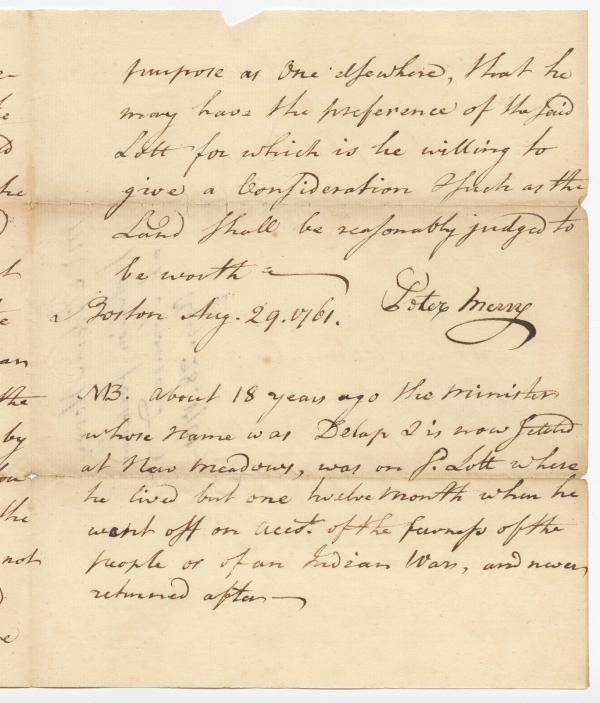 purpose as One elsewhere, that he
may have the preference of the said
Lott for which is he willing to
give a Consideration Such as the
Land shall be reasonably judged to
be worth
Boston Aug. 29. 1761.
Peter Merry
NB. about 18 years ago the minister
whose name was Delap & is now settled
at New meadows, was on sd. Lott where
he lived but one twelve month when he
went off on acct. of the fewness of the
people or of an Indian War, and never
returned after
an
the
by
the
not